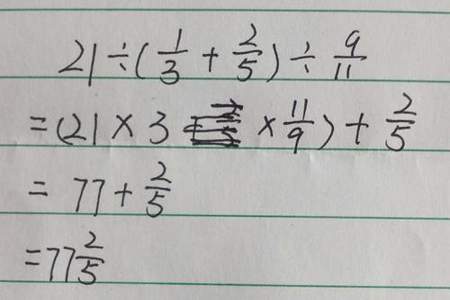 21÷(1/3+2/5)÷9/11
=(21×3×11/9)+2/5
=77+2/5
=77 2/5